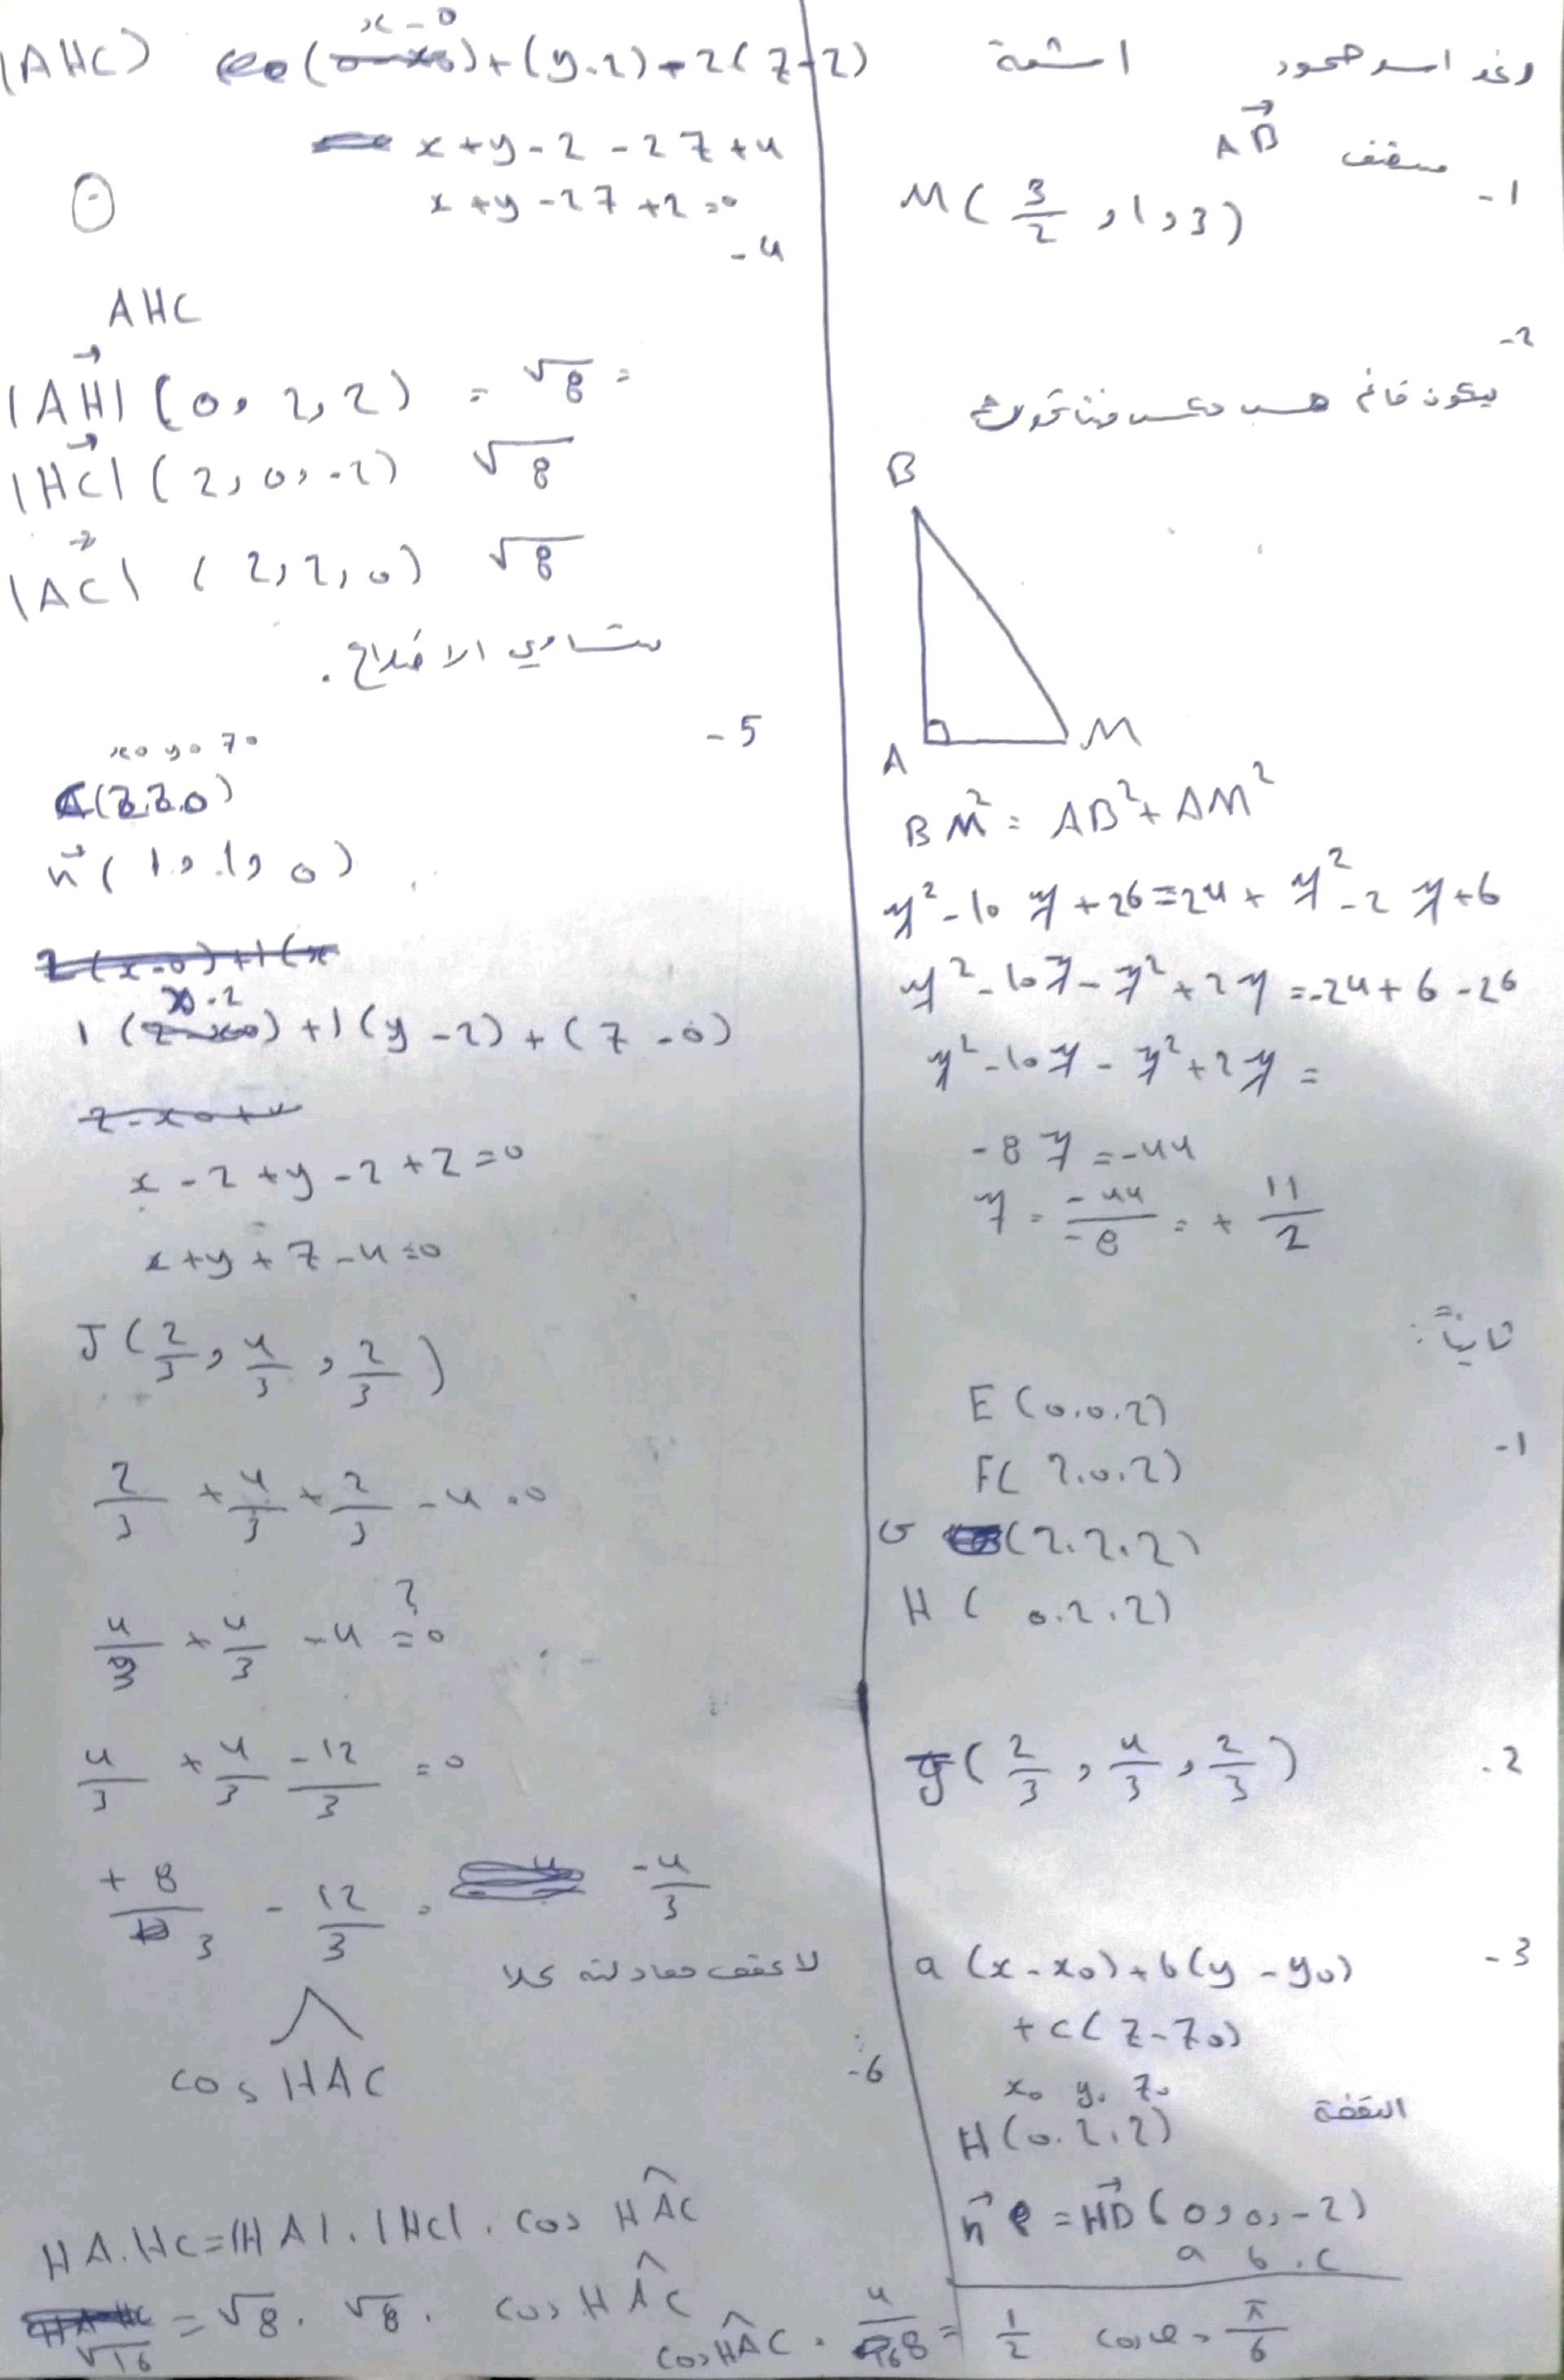 رغد اسد حمود اشعة
1- منتصف AB
M( 3/2 , 1 , 3)
2-
يكون قائم حسب عكس فيثاغورث
B
A M
BM² = AB² + AM²
y² - 10y + 26 = 24 + y² - 2y + 6
y² - 10y - y² + 2y = 24 + 6 - 26
y² - 10y - y² + 2y =
-8y = -44
y = -44/-8 = + 11/2
ثانياً :
1-
E (0.0.2)
F( 2.0.2)
G (2.2.2)
H ( 0.2.2)
2- J( 2/3 , 4/3 , 2/3 )
3- a (x - x0) + b(y - y0)
+ c( z - z0)
x0 y0 z0
النقطة H(0.2.2)
n = HD (0,0,-2)
a b . c
(AHC) (x-0)+(y-2)-2(z-2)
x + y - 2 - 2z + 4
x + y - 2z + 2 = 0
4-
AHC
|AH| (0, 2, 2) = √8 =
|HC| (2, 0, -2) √8
|AC| (2, 2, 0) √8
متساوي الاضلاع .
5-
x0 y0 z0
C(2.2.0)
n( 1, 1, 0)
1 (x-2) + 1(y - 2) + (z - 0)
x - 2 + y - 2 + z = 0
x + y + z - 4 = 0
J ( 2/3 , 4/3 , 2/3 )
2/3 + 4/3 + 2/3 - 4 = 0
4/3 + 4/3 - 4 =? 0
4/3 + 4/3 - 12/3 = 0
+ 8/3 - 12/3 = -4/3
لا تحقق معادلته كلا
6-
cos HAC
HA.HC = |HA| . |HC| . cos HAC
√16 = √8 . √8 . cos HAC
cos HAC = 4/8 = 1/2 cos θ = π/6